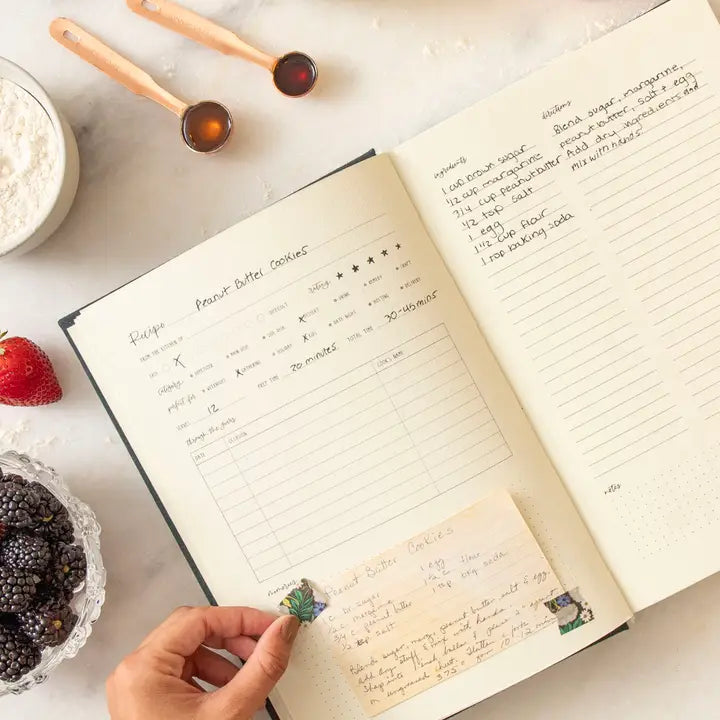 Recipe Peanut Butter Cookies
FROM THE KITCHEN OF
rating: ★ ★ ★ ★ ★
EASY X DIFFICULT
category: APPETIZER MAIN DISH SIDE DISH X DESSERT DRINK BAKERY CRAFT
perfect for: WEEKNIGHT X GATHERING HOLIDAY X KIDS DATE NIGHT POTLUCK DELIVERY
SERVES 12 PREP TIME 20 minutes TOTAL TIME 30-45 mins
through the years
DATE OCCASION COOK'S NAME
memories
Peanut Butter Cookies
1 c br. sugar
1/2 c margarine
3/4 c peanut butter
1/2 tsp salt
1 egg
1 1/2 c flour
1 tsp bkg soda
Blend sugar, marg, peanut butter, salt & egg.
Add dry stuff & mix with hands.
Shape into 1 inch balls & place 2" apart
on ungreased sheet. Flatten c fork
375° for 10-12 min
ingredients
1 cup brown sugar
1/2 cup margarine
3/4 cup peanut butter
1/2 tsp salt
1 egg
1 1/2 cup flour
1 tsp baking soda
directions
Blend sugar, margarine,
peanut butter, salt & egg
Add dry ingredients and
mix with hands
notes